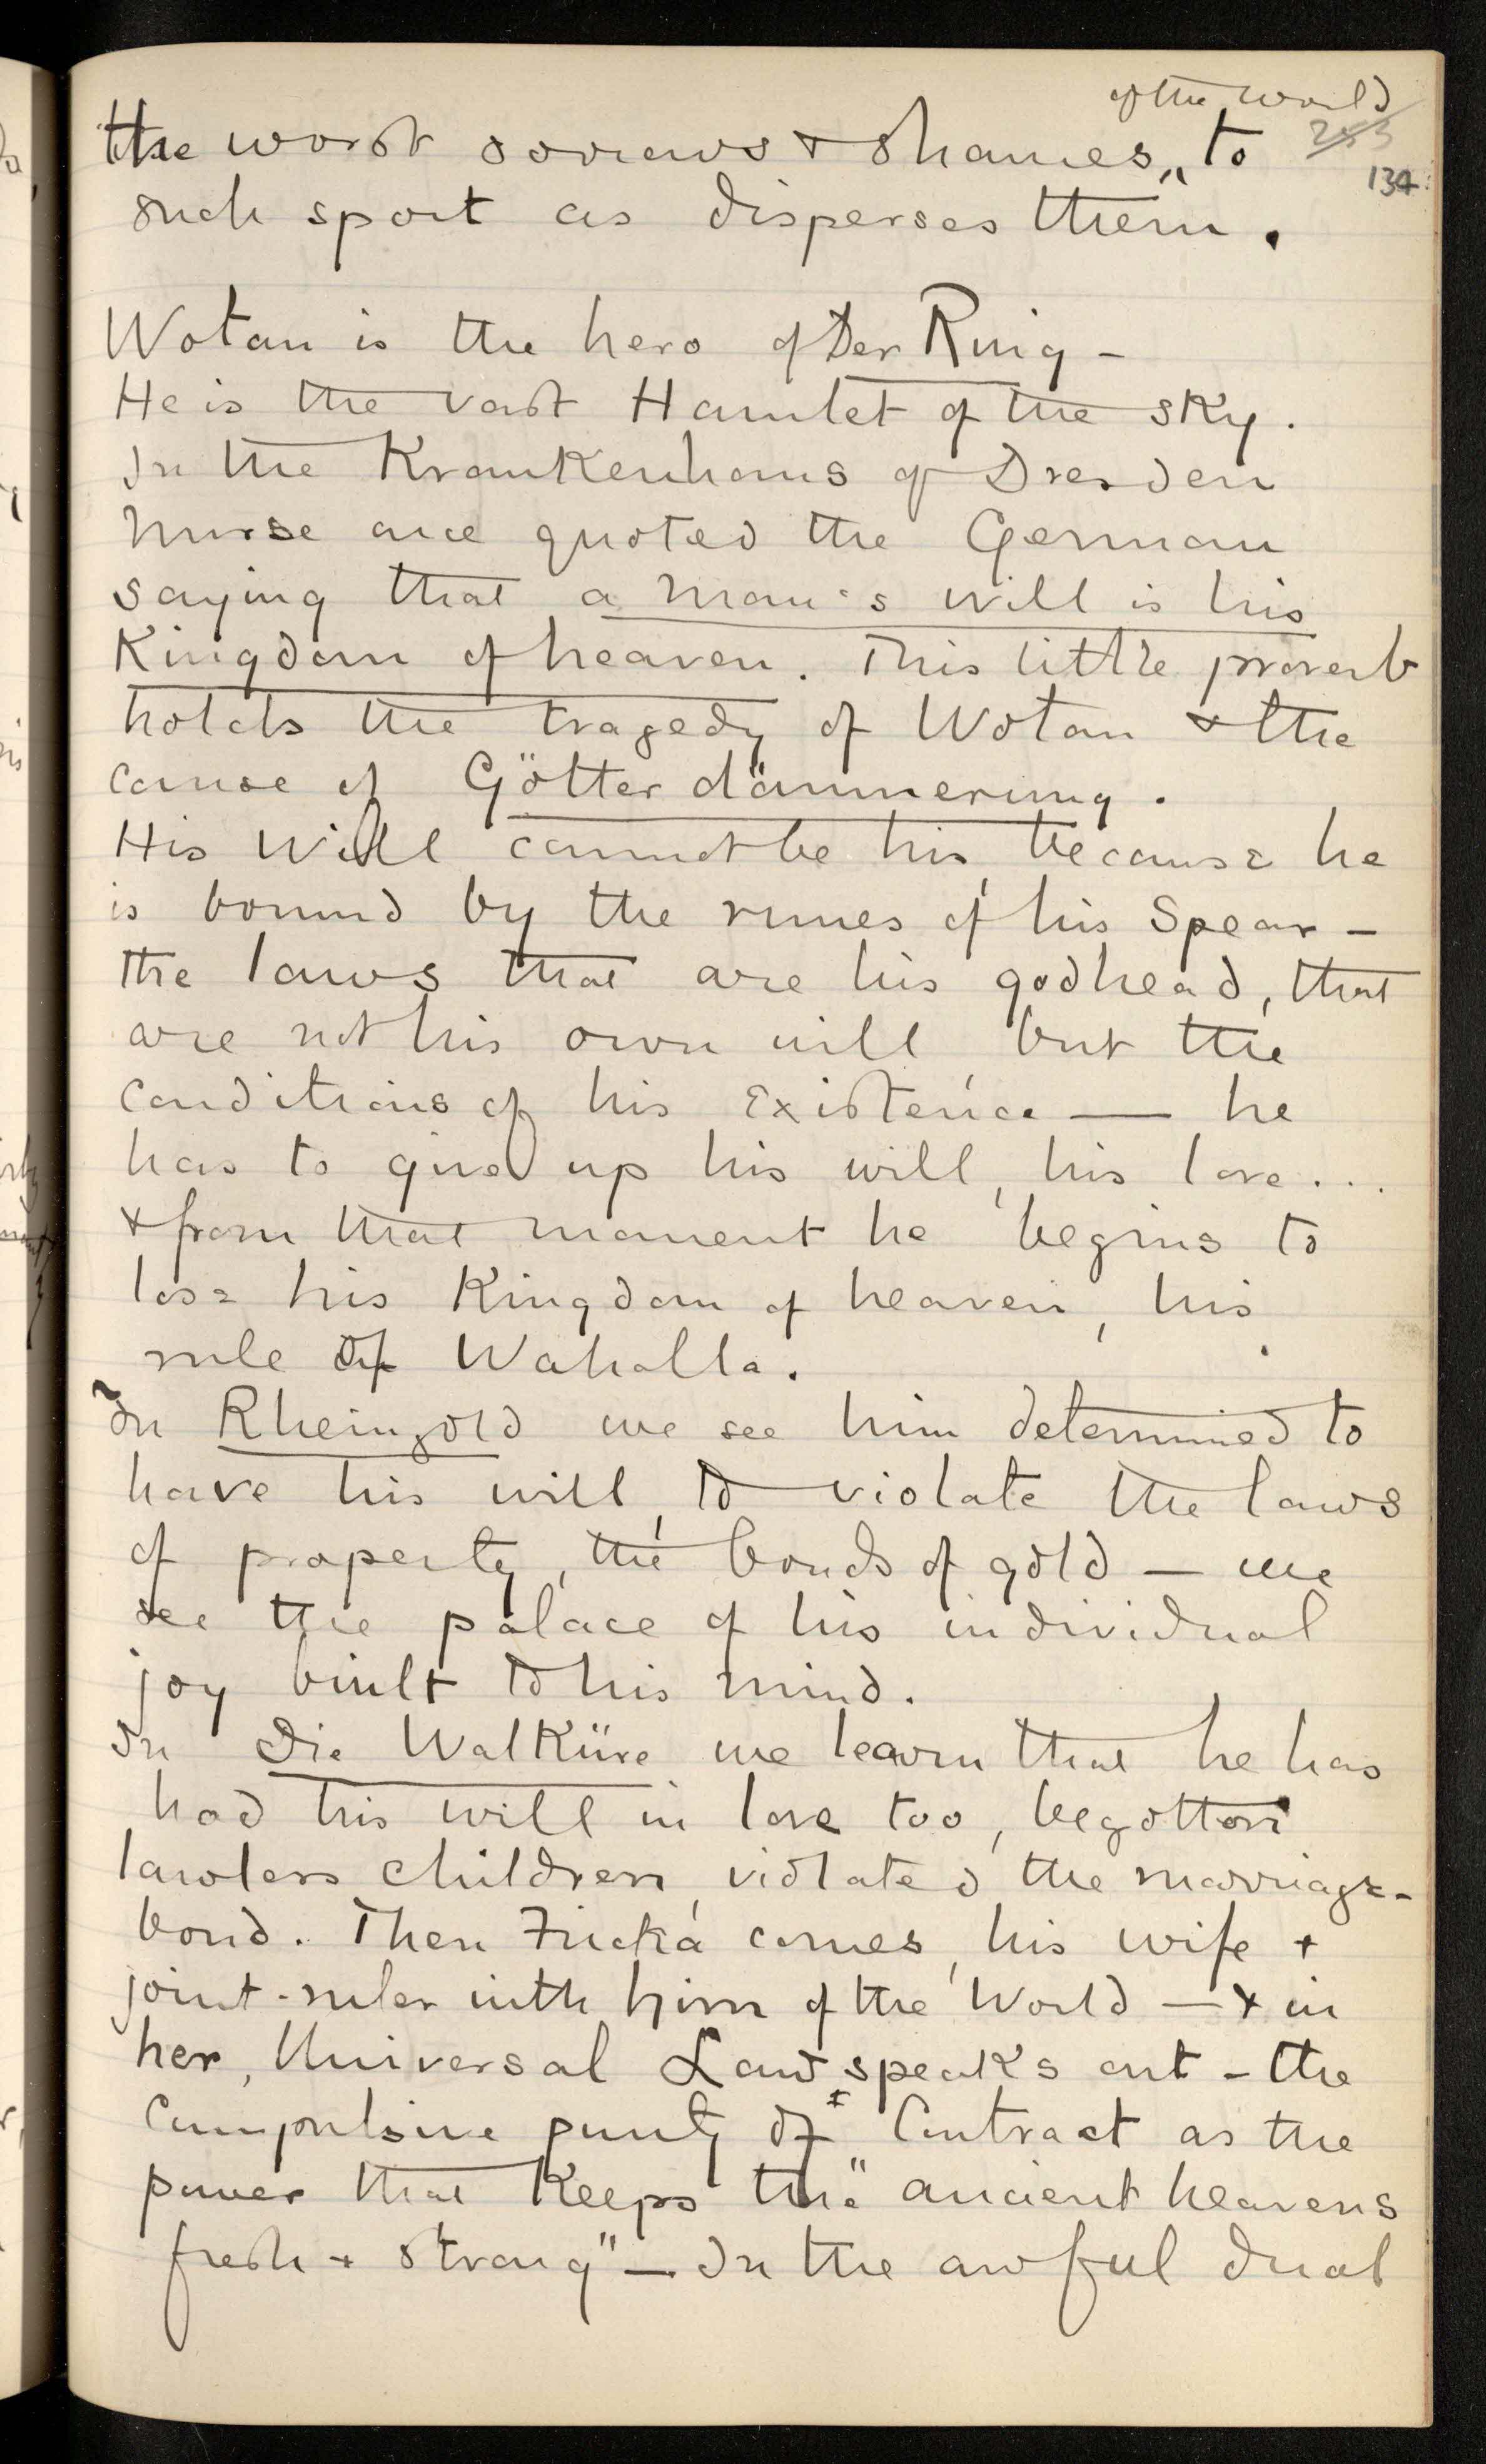 of the World
the worst sorrows + shames,, to 253
134
such sport as disperses them.
Wotan is the hero of Der Ring –
He is the vast Hamlet of the sky.
In the Krankenhaus of Dresden
Nurse once quoted the German
saying that a man's will is his
Kingdom of heaven. This little proverb
holds the tragedy of Wotan + the
cause of Götterdämmerung.
His Will cannot be his, because he
is bound by the runes of his Spear –
the laws that are his godhead, that
are not his own will, but the
conditions of his Existence — he
has to give up his will, his love...
+ from that moment he begins to
lose his Kingdom of heaven, his
rule of Wahalla.
In Rheingold we see him determined to
have his will, to violate the laws
of property, the bonds of gold — we
see the palace of his individual
joy built to his mind.
In Die Walküre we learn that he has
had his will in love too, begotten
lawless children, violated the marriage-
bond. Then Fricka comes, his wife +
joint-ruler with him of the World — + in
her, Universal Law speaks out – the
compulsive purity of Contract as the
power that keeps the "ancient heavens
fresh + strong" — In the awful dual